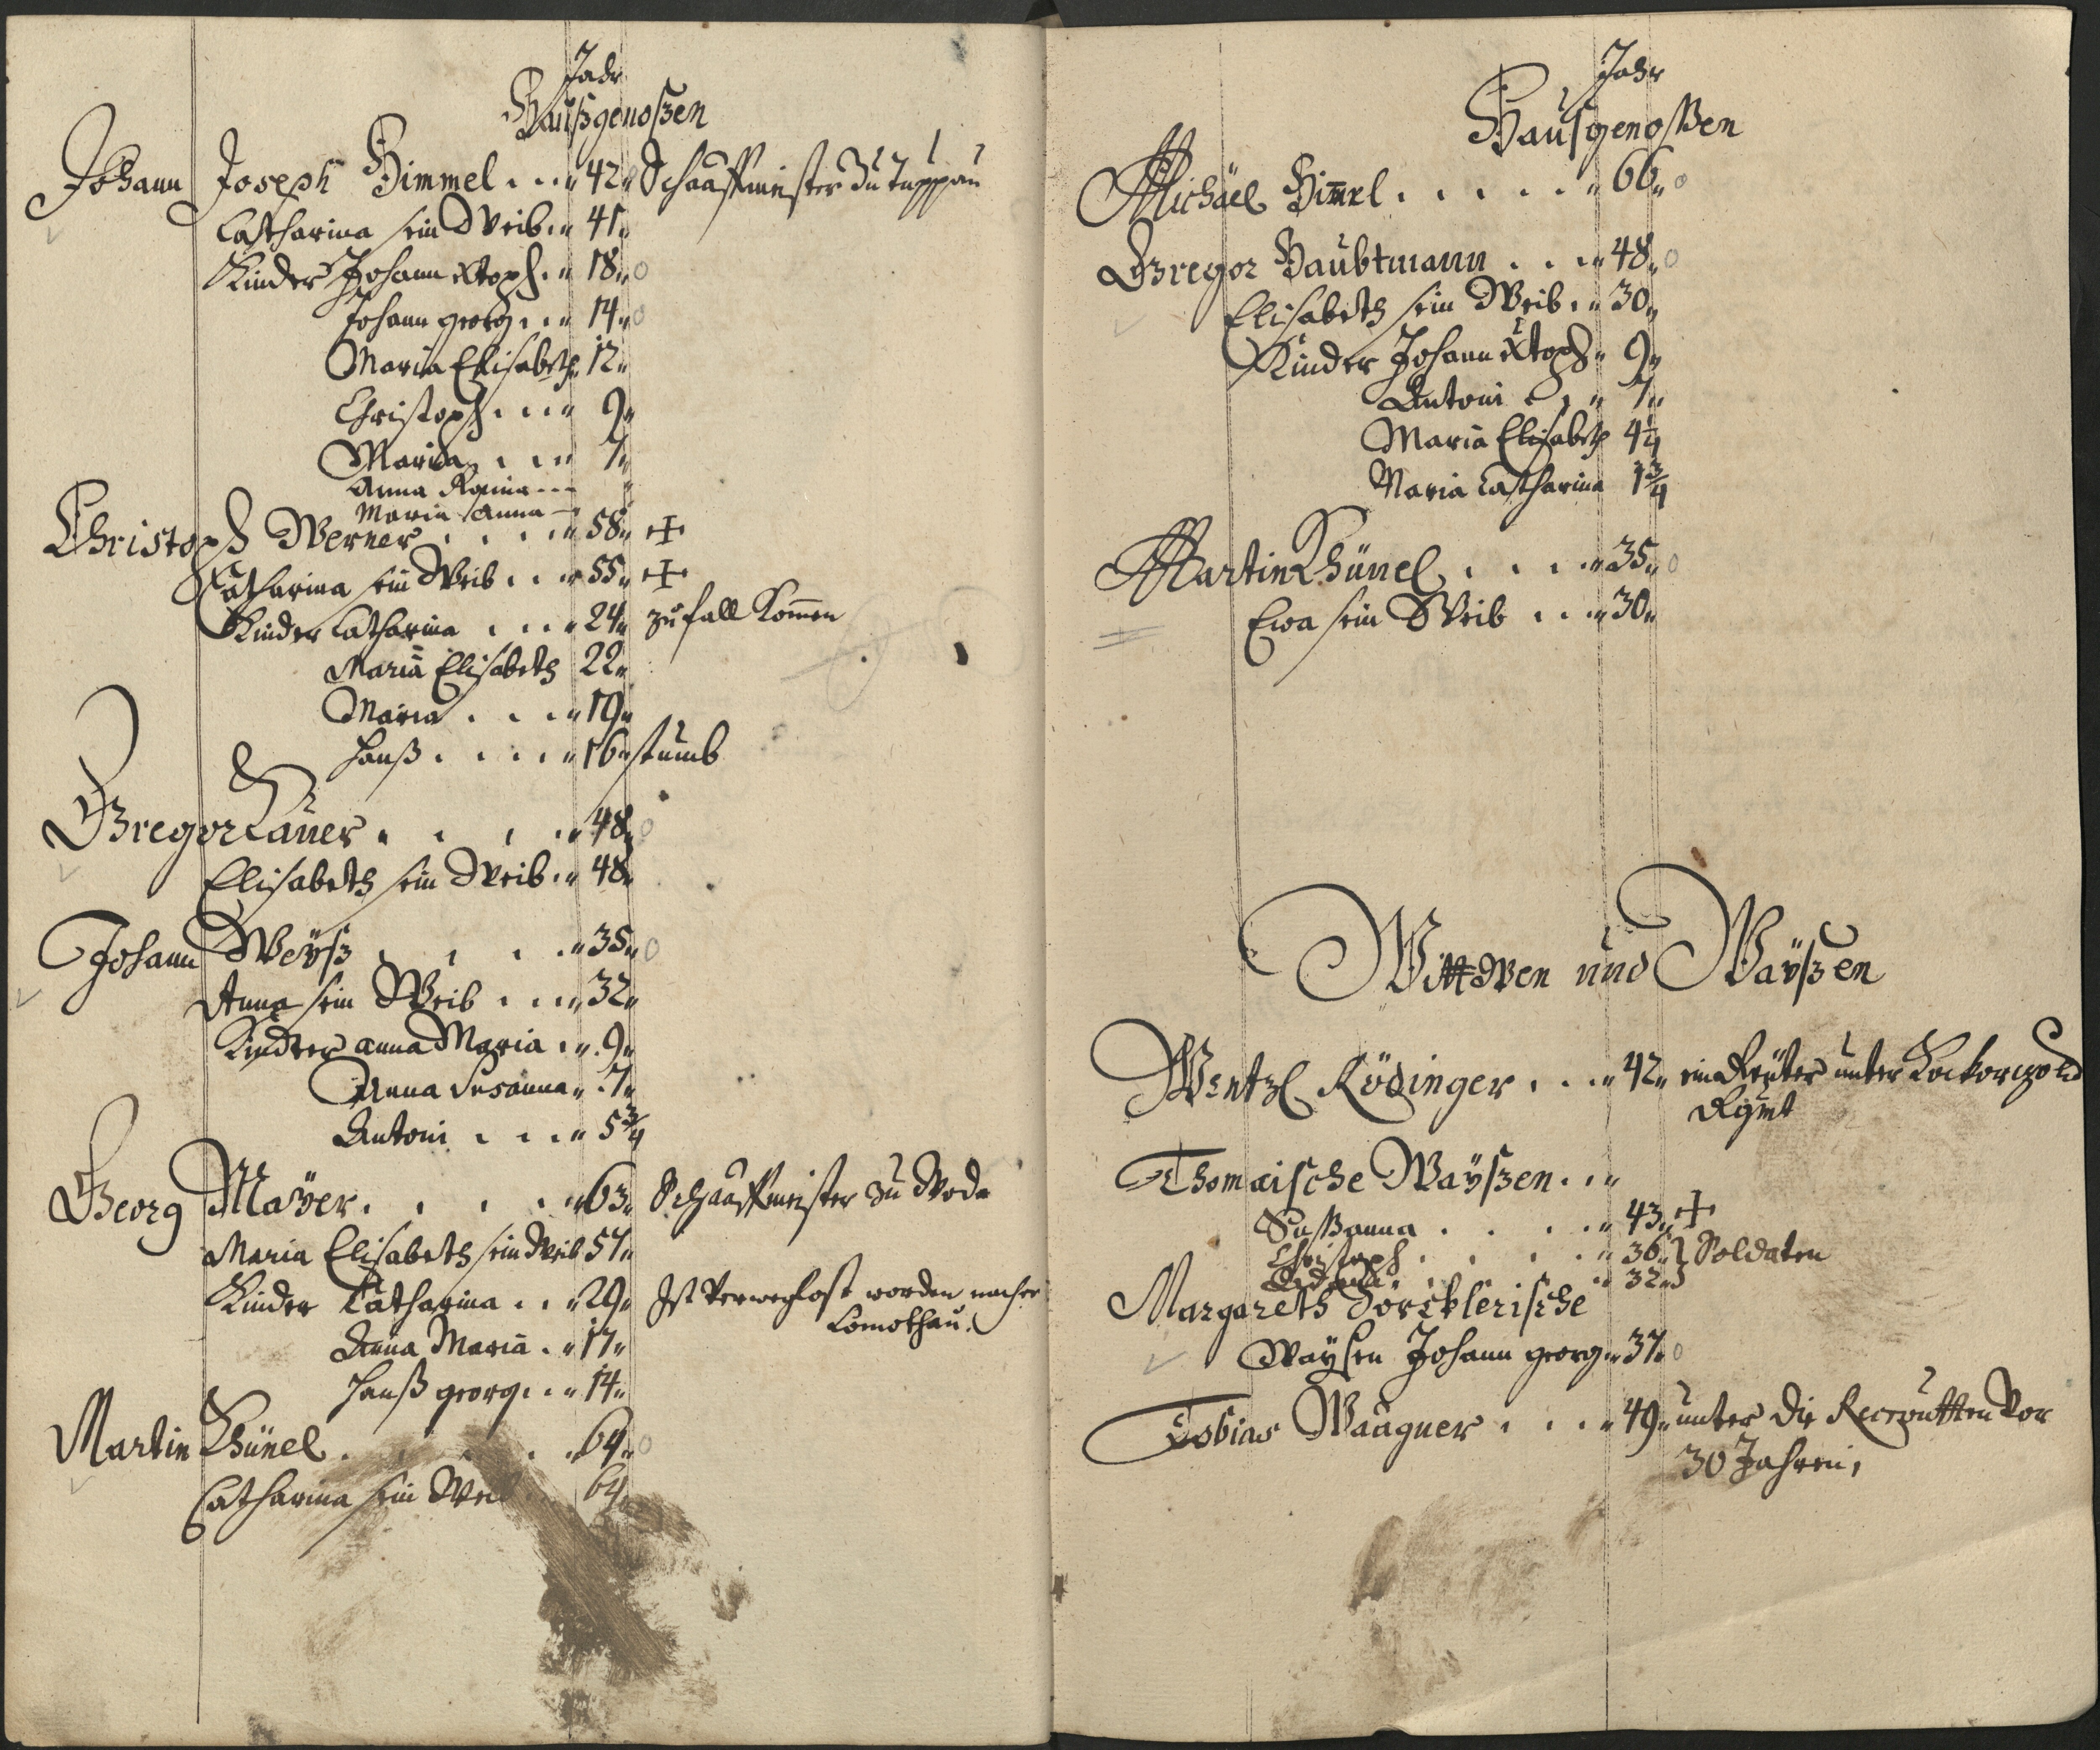 Jahr
Haußgenoßen
Johann Joseph Himmel . . . 42 Schaaffmeister Zu Tuppau
Catharina sein Weib . . 41
Kinder Johann Xtoph . . 18
Johann georg . . . 14
Maria Elisabeth 12
Christoph . . . 9
Maria . . . 7
Anna Rosina - - -
Maria Anna -
Christoph Werner . . . . 58 +
Catharina sein Weib . . . 55 +
Kinder Catharina . . . 24 zu fall komen
Maria Elisabeth 22
Maria . . . 19
Hanß . . . . 16 stumb
Gregor Lauer . . . . 48
Elisabeth sein Weib . . 48
Johann Weyß . . . . 35
Anna sein Weib . . . 32
Kinder anna Maria . . 9
Anna Susanna . 7
Antoni . . . . 5 3/4
Georg Mayer . . . . 63 Schaaffmeister zu
Maria Elisabeth sein Weib 57
Kinder Catharina . . 29 Ist worden nacher
Comothau.
Anna Maria . 17
Hanß georg . . 14
Martin Khünel . . . . 64
Catharina sein Weib 64
Jahr
Haußgenoßen
Michael Himel . . . . . 66
Gregor Haubtmann . . . 48
Elisabeth sein Weib . . 30
Kinder Johann Xtoph 9
Antoni . . 7
Maria Elisabeth 4 1/4
Maria Catharina 1 3/4
Martin Khünel . . . . 35
Ewa sein Weib . . . 30
Wittwen und Waÿßen
Wentzl Rödinger . . . 42 ein Reüter unter
Rgmt
Thomaische Waÿßen . . .
Sußanna . . . . 43 +
Christoph . . . . 36 } Soldaten
32
Margareth Förcklerische
Waÿsen Johann georg 37
Tobias Waagner . . . 49 unter die Recroutten Vor
30 Jahren,